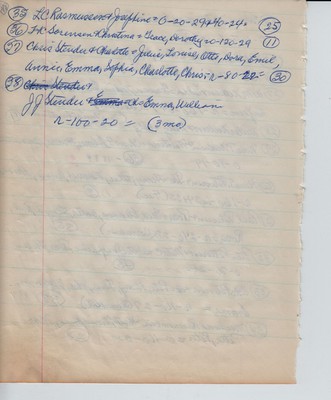 (35) LC Rasmussen + Josephine = O-20-29 + 40-29 = (25)
(36) Sorensen + Christina = Isaac, Dorothy = O-120-29 (11)
(37) Chris Studer + Charlotte = Julius, Louise, Otto, Dora, Emil,
Annie, Emma, Sophia, Charlotte, Chris = r-80-22 = (30)
(38) Chris Studer +
JJ Studer + Emma = Emma, William
r-100-20 = (3 mo)